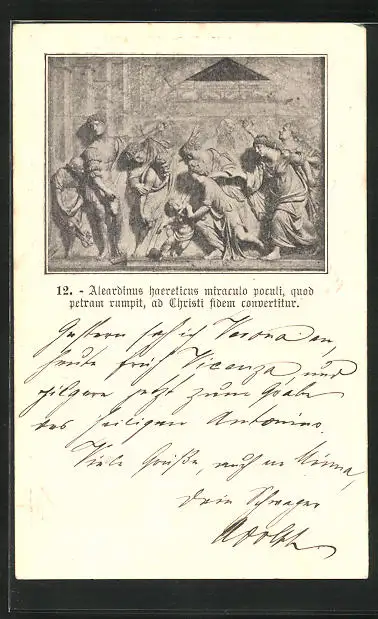 12. - Aleardinus haereticus miraculo poculi, quod
petram rumpit, ad Christi fidem convertitur.
Gestern sah ich Verona an,
heute früh Vicenza, und
pilgere jetzt zum Grabe
des heiligen Antonius.
Viele Grüße, auch an Minna,
Dein Schwager
Adolph